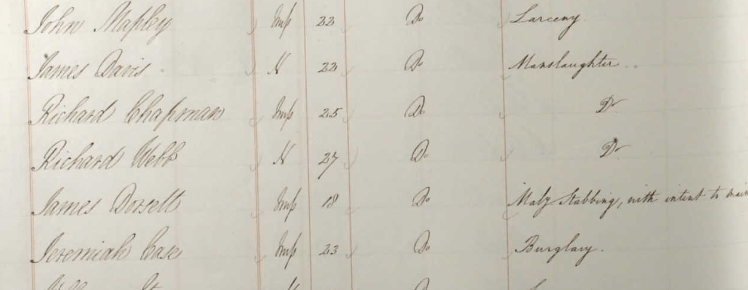 John Mapley Imp 22 Do Larceny
James Davis N 22 Do Manslaughter
Richard Chapman Imp 25 Do Do
Richard Webb N 27 Do Do
James Dorsett Imp 18 Do Maly Stabbing, with intent to
Jeremiah Case Imp 23 Do Burglary.